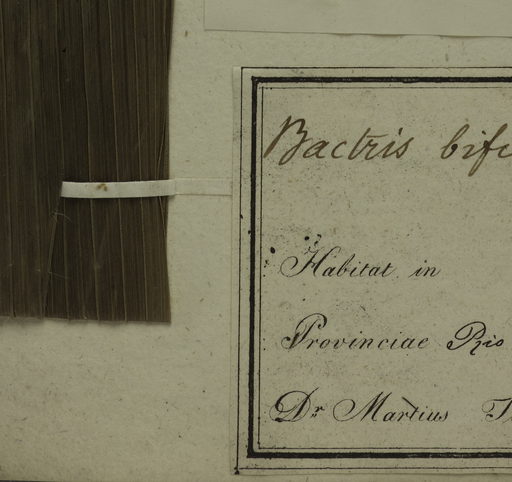 Bactris bif
Habitat in
Provinciae Rio
Dr Martius